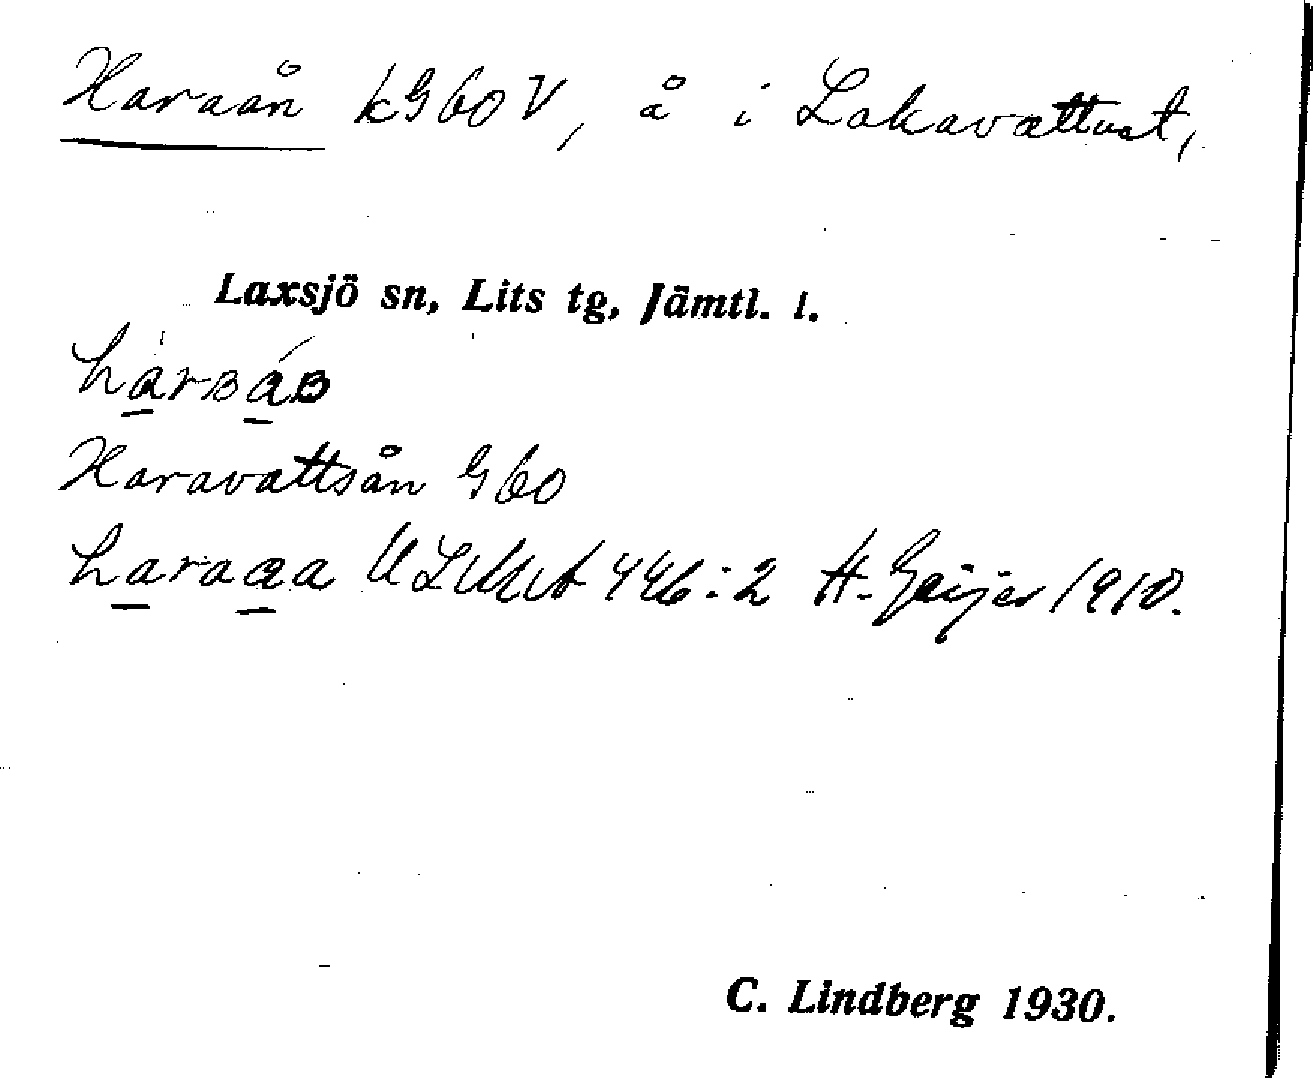 Haraån kG60V, å i Lakavattnet,
Laxsjö sn, Lits tg, Jämtl. l.
Haravattsån G60
haraaa ULMA 446:2 H. Geijer 1910.
C. Lindberg 1930.